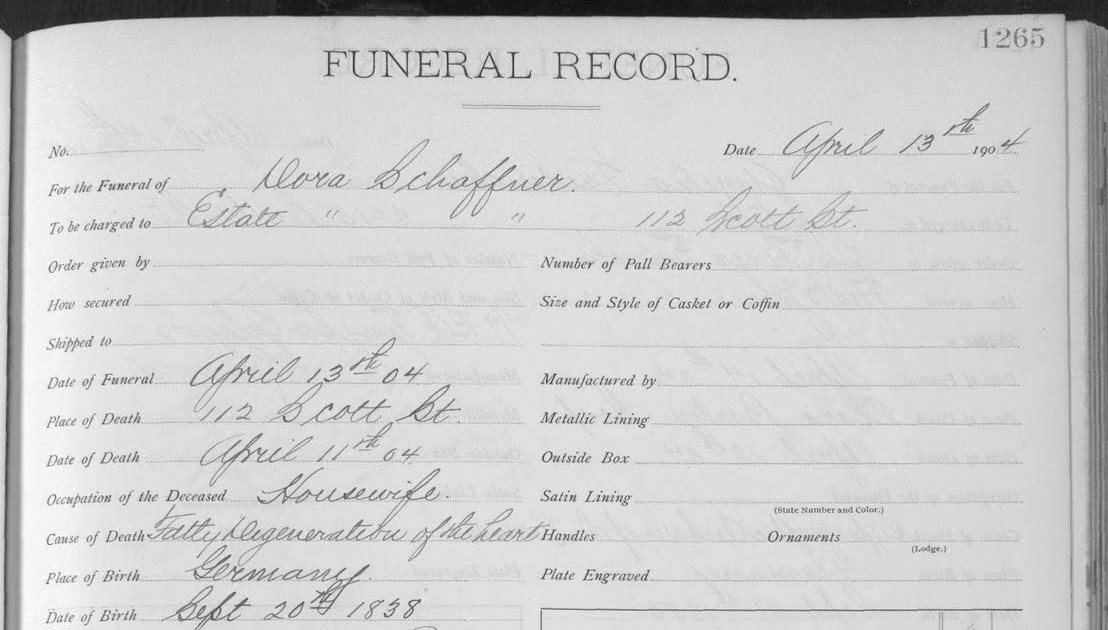 1265
FUNERAL RECORD.
No.
Date April 13th 1904
For the Funeral of Dora Schaffner.
To be charged to Estate " " 112 Scott St.
Order given by
Number of Pall Bearers
How secured
Size and Style of Casket or Coffin
Shipped to
Date of Funeral April 13th 04
Manufactured by
Place of Death 112 Scott St.
Metallic Lining
Date of Death April 11th 04
Outside Box
Occupation of the Deceased Housewife.
Satin Lining
(State Number and Color.)
Cause of Death Fatty Degeneration of the heart
Handles Ornaments
(Lodge.)
Place of Birth Germany.
Plate Engraved
Date of Birth Sept 20th 1838